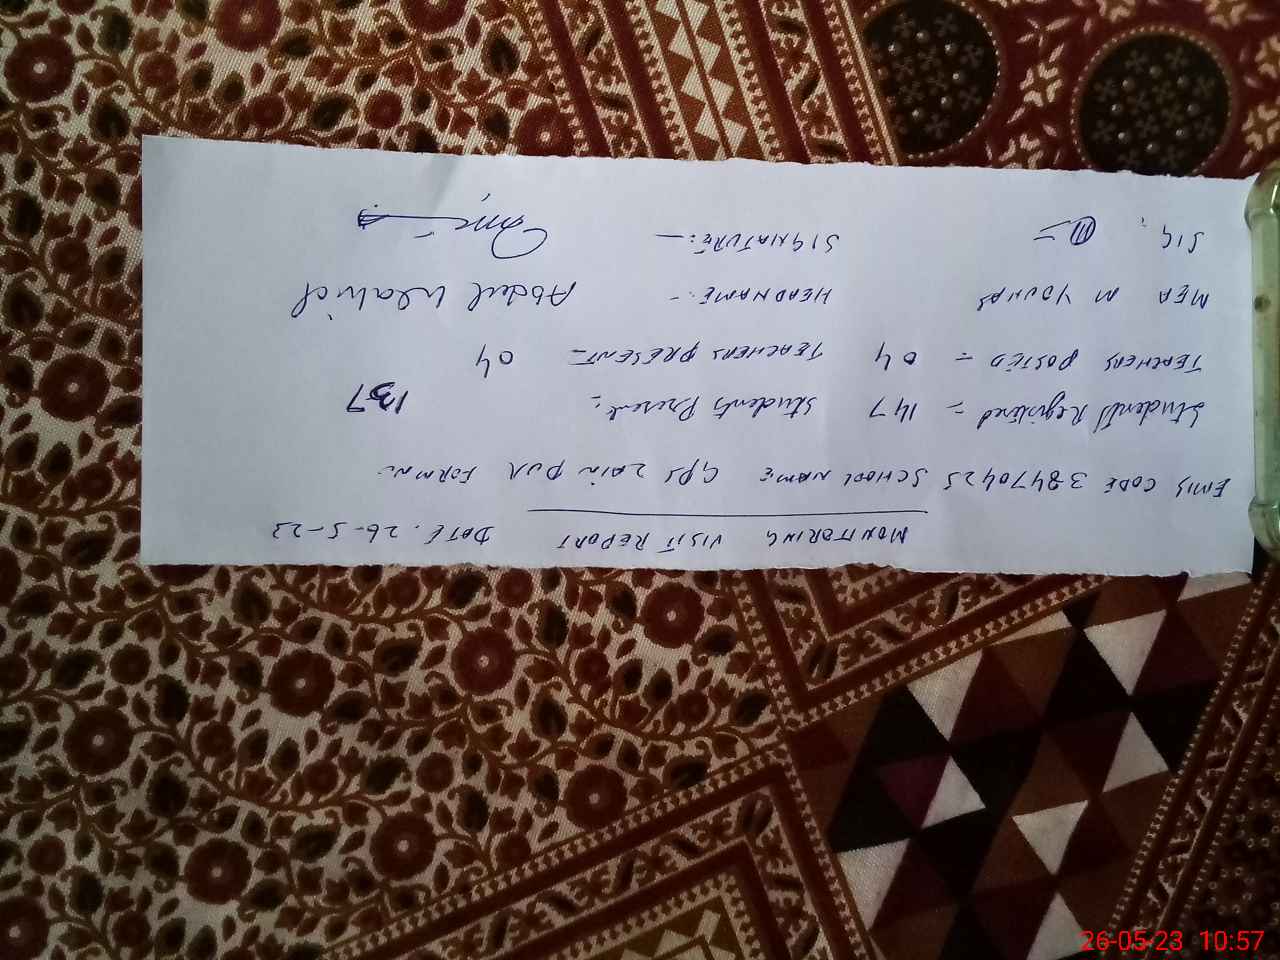 MONITORING VISIT REPORT DATE. 26-5-23
EMIS CODE 38470425 SCHOOL NAME GPS ZAIN PUR FORM NO:
Students Registered = 147 Students Present = 137
TEACHERS POSTED = 04 TEACHERS PRESENT = 04
MEA M YOUNAS HEADNAME:- Abdul Wahid
SIG: SIGNATURE:-
26-05-23 10:57